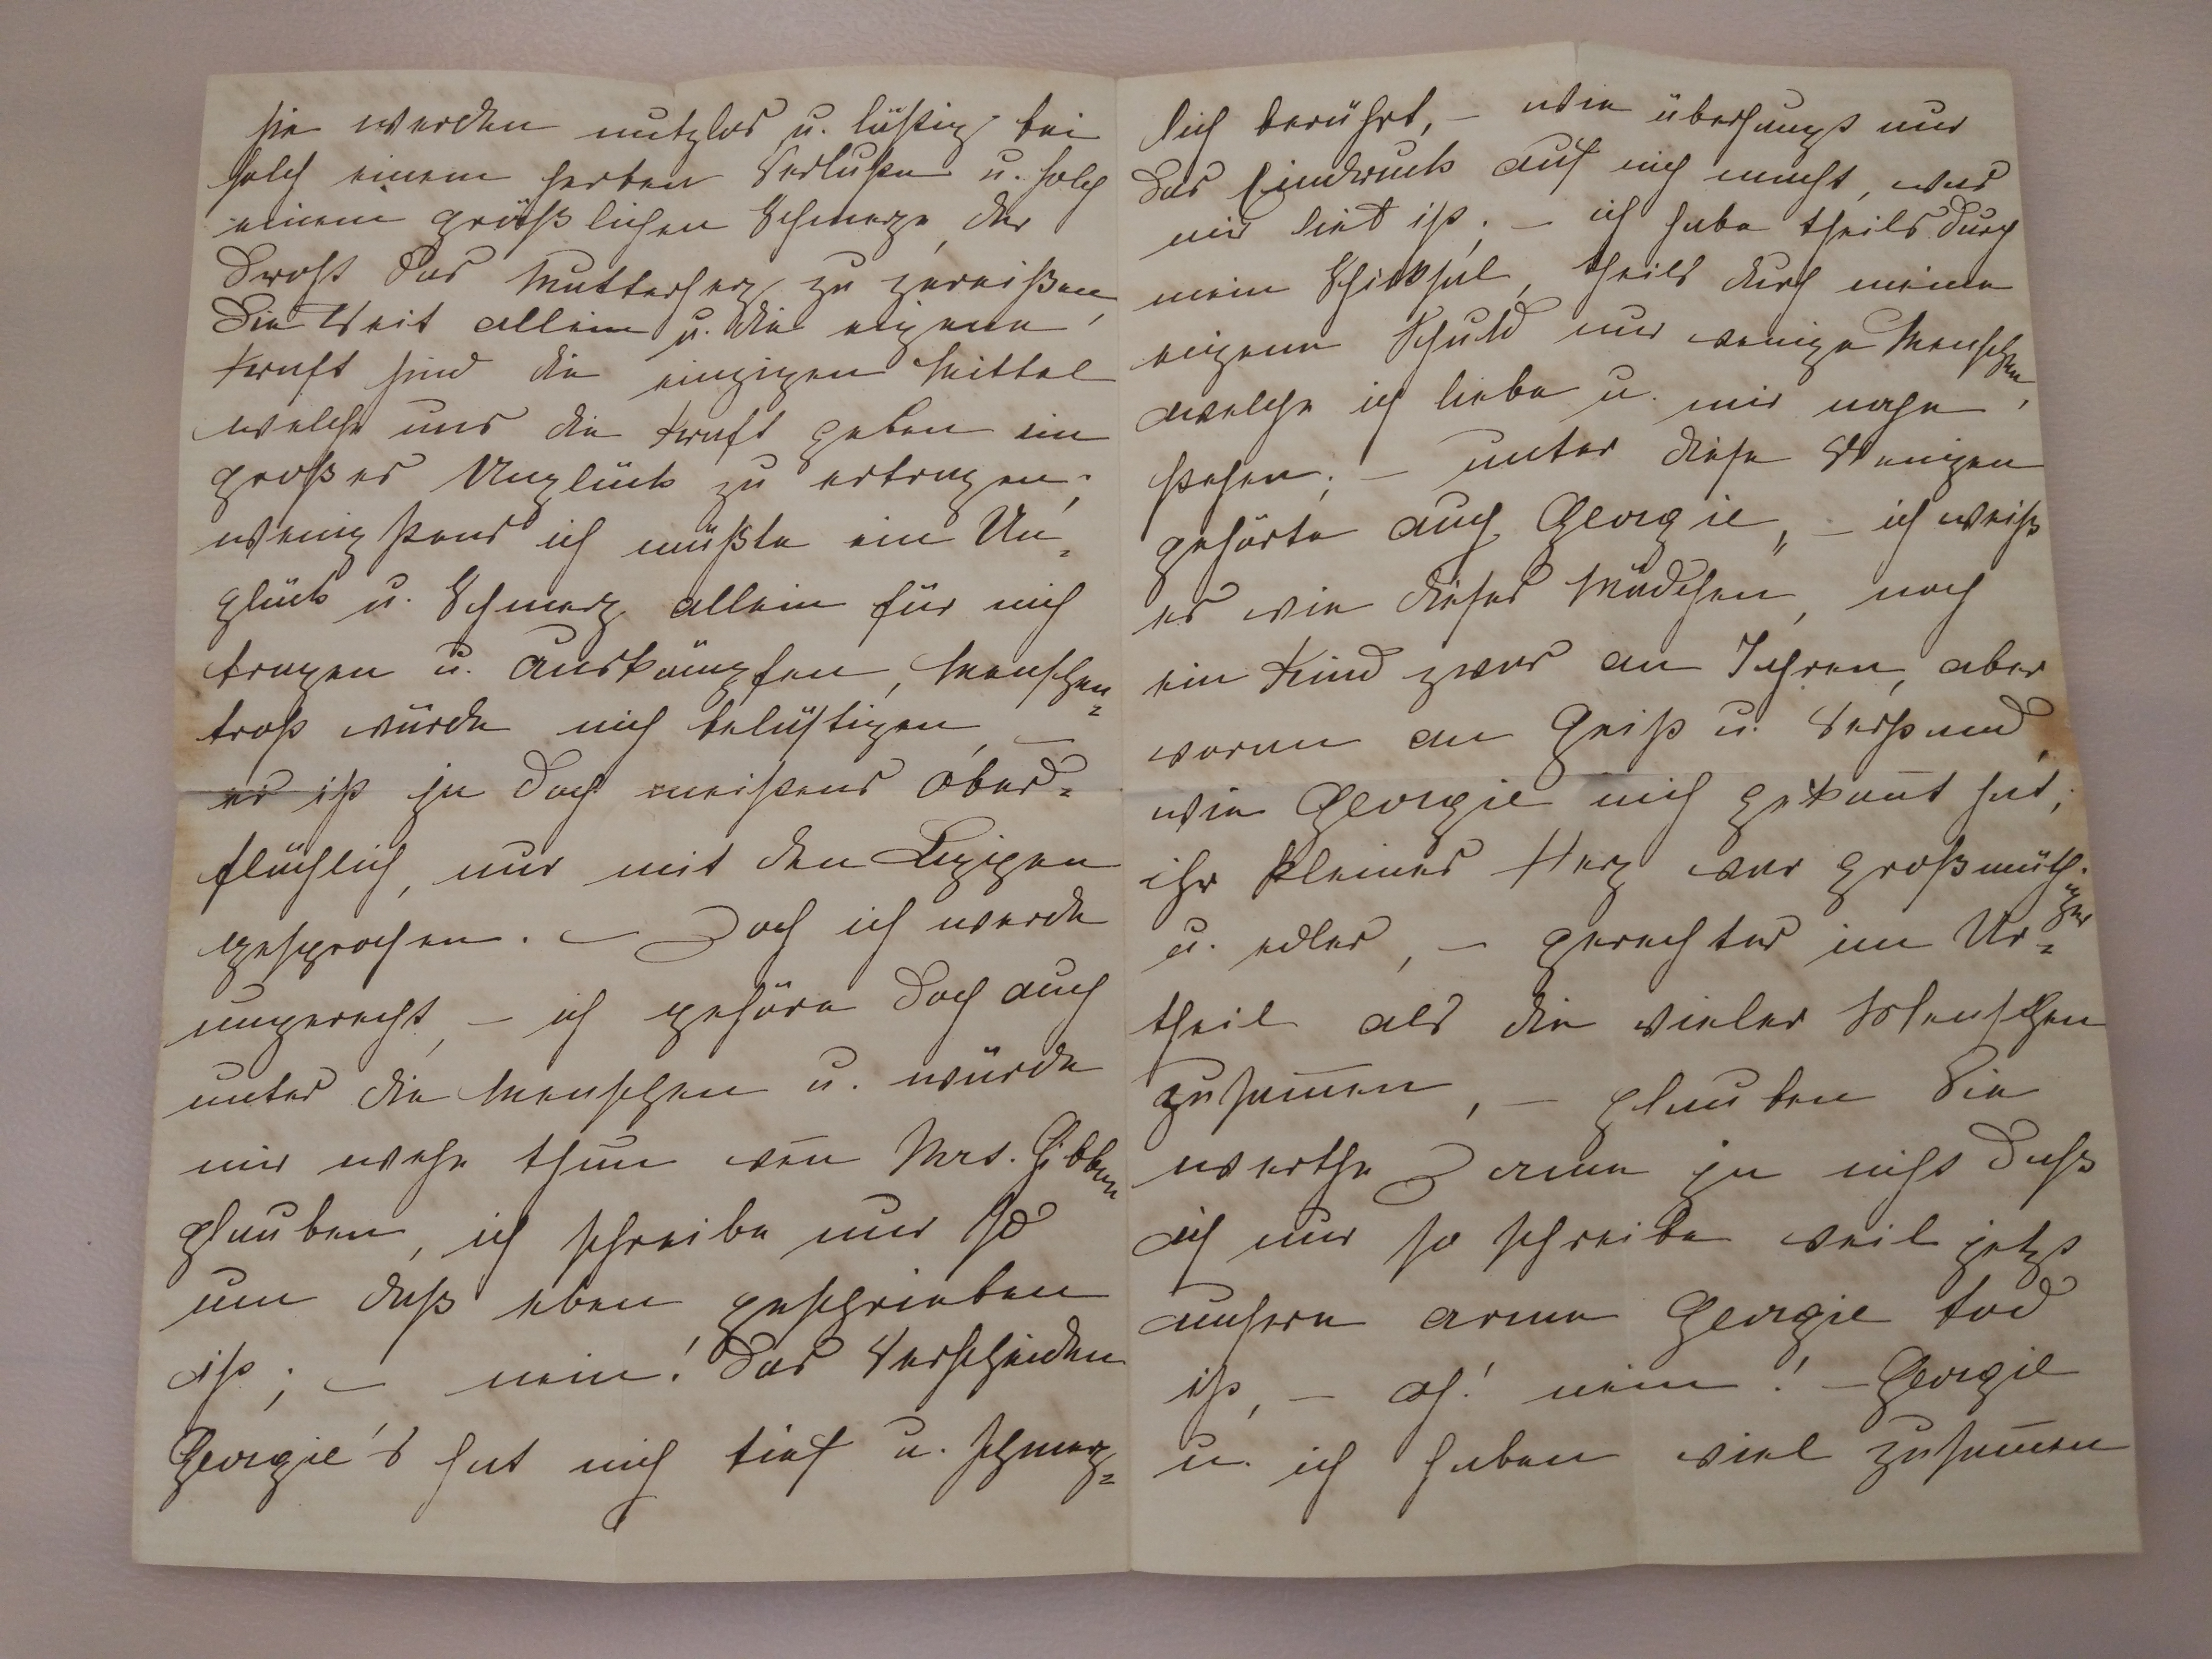 sie werden nutzlos u. lästig bei
solch einem herben Verluste u. solch
einem gräßlichen Schmerze, der
droht das Mutterherz zu zereißen,
die Zeit allein u. die eigene
Kraft sind die einzigen Mittel
welche uns die Kraft geben ein
großes Unglück zu ertragen;
wenigstens ich müßte ein Un=
glück u. Schmerz allein für mich
tragen u. auskämpfen, Menschen=
trost würde mich belästigen, –
er ist ja doch meistens ober=
flächlich, nur mit den Lippen
gesprochen. – Doch ich werde
ungerecht, – ich gehöre doch auch
unter die Menschen u. würde
mir wehe thun wen̄ Mrs. Gibbon
glauben, ich schreibe nur so
um daß eben geschrieben
ist; – nein! das Verscheiden
Georgie's hat mich tief u. schmerz=
lich berührt, – wie überhaupt nur
das Eindruck auf mich macht, was
mir lieb ist; – ich habe theils durch
mein Schicksal, theils durch meine
eigene Schuld nur wenige Menschen,
welche ich liebe u. mir nahe
stehen; – unter diese Wenigen
gehörte auch Georgie, – ich weiß
es wie dieses Mädchen, noch
ein Kind zwar an Jahren, aber
voran an Geist u. Verstand,
wie Georgie mich gekan̄t hat;
ihr kleines Herz war großmüth=
iger
u. edler, – gerechter im Ur=
theil als die vieler Menschen
zusam̄en, – glauben Sie
werthe Dame ja nicht daß
ich nur so schreibe weil jetzt
unsere arme Georgie tod
ist, – oh! nein! – Georgie
u. ich haben viel zusam̄en